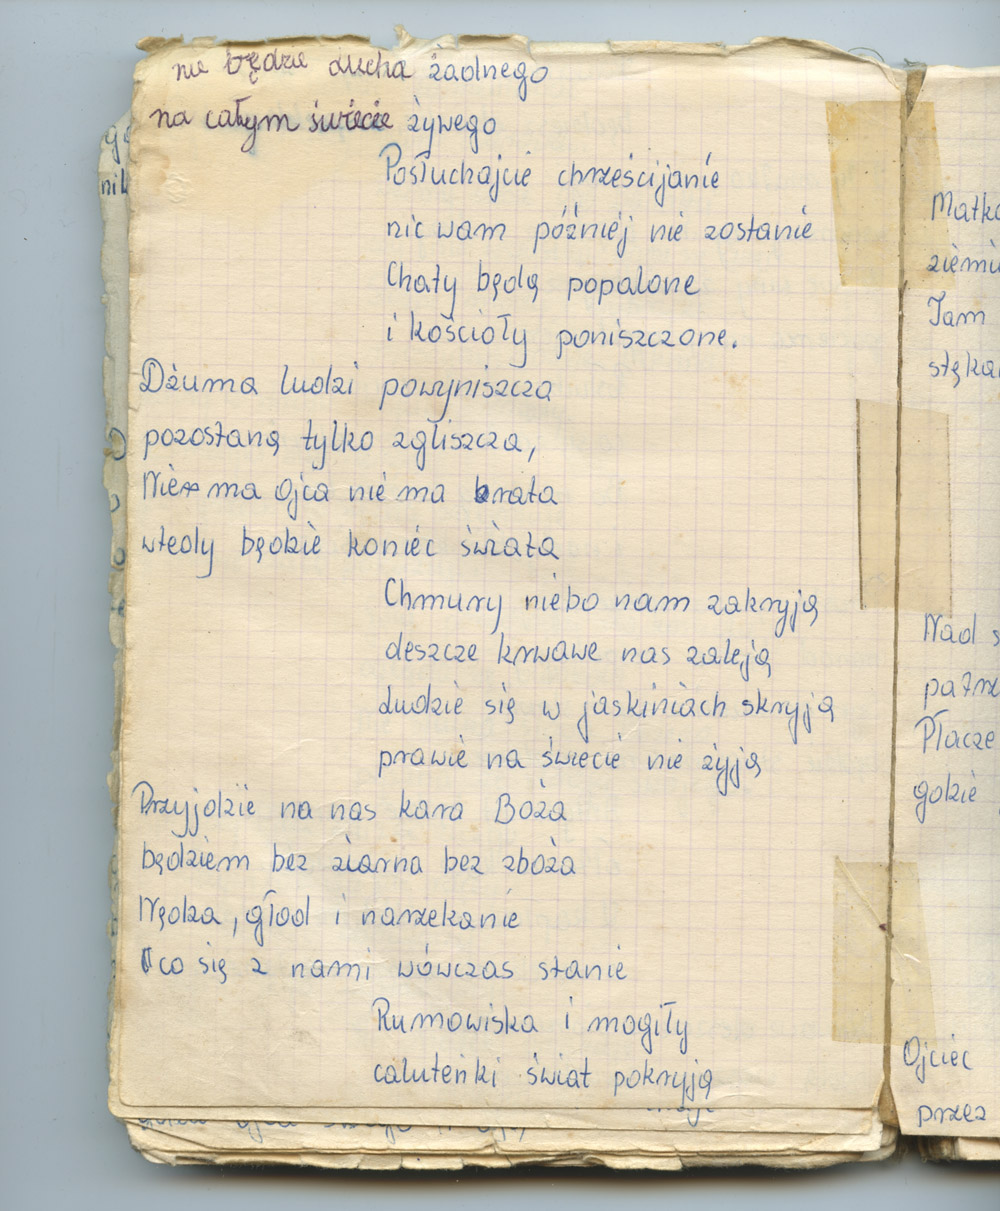 nie będzie ducha żadnego
na całym świecie żywego
Posłuchajcie chrześcijanie
nic wam później nie zostanie
Chaty będą popalone
i kościoły poniszczone.
Dżuma ludzi powyniszcza
pozostaną tylko zgliszcza,
Nie ma ojca nie ma brata
wtedy będzie koniec świata
Chmury niebo nam zakryją
deszcze krwawe nas zaleją
Ludzie się w jaskiniach skryją
prawie na świecie nie żyją
Przyjdzie na nas kara Boża
będziem bez ziarna bez zboża
Nędza, głod i narzekanie
co się z nami wówczas stanie
Rumowiska i mogiły
calutenki świat pokryją
Matko
ziemi
Tam
stęka
Nad s
patrz
Płacze
gdzie
Ojciec
przez